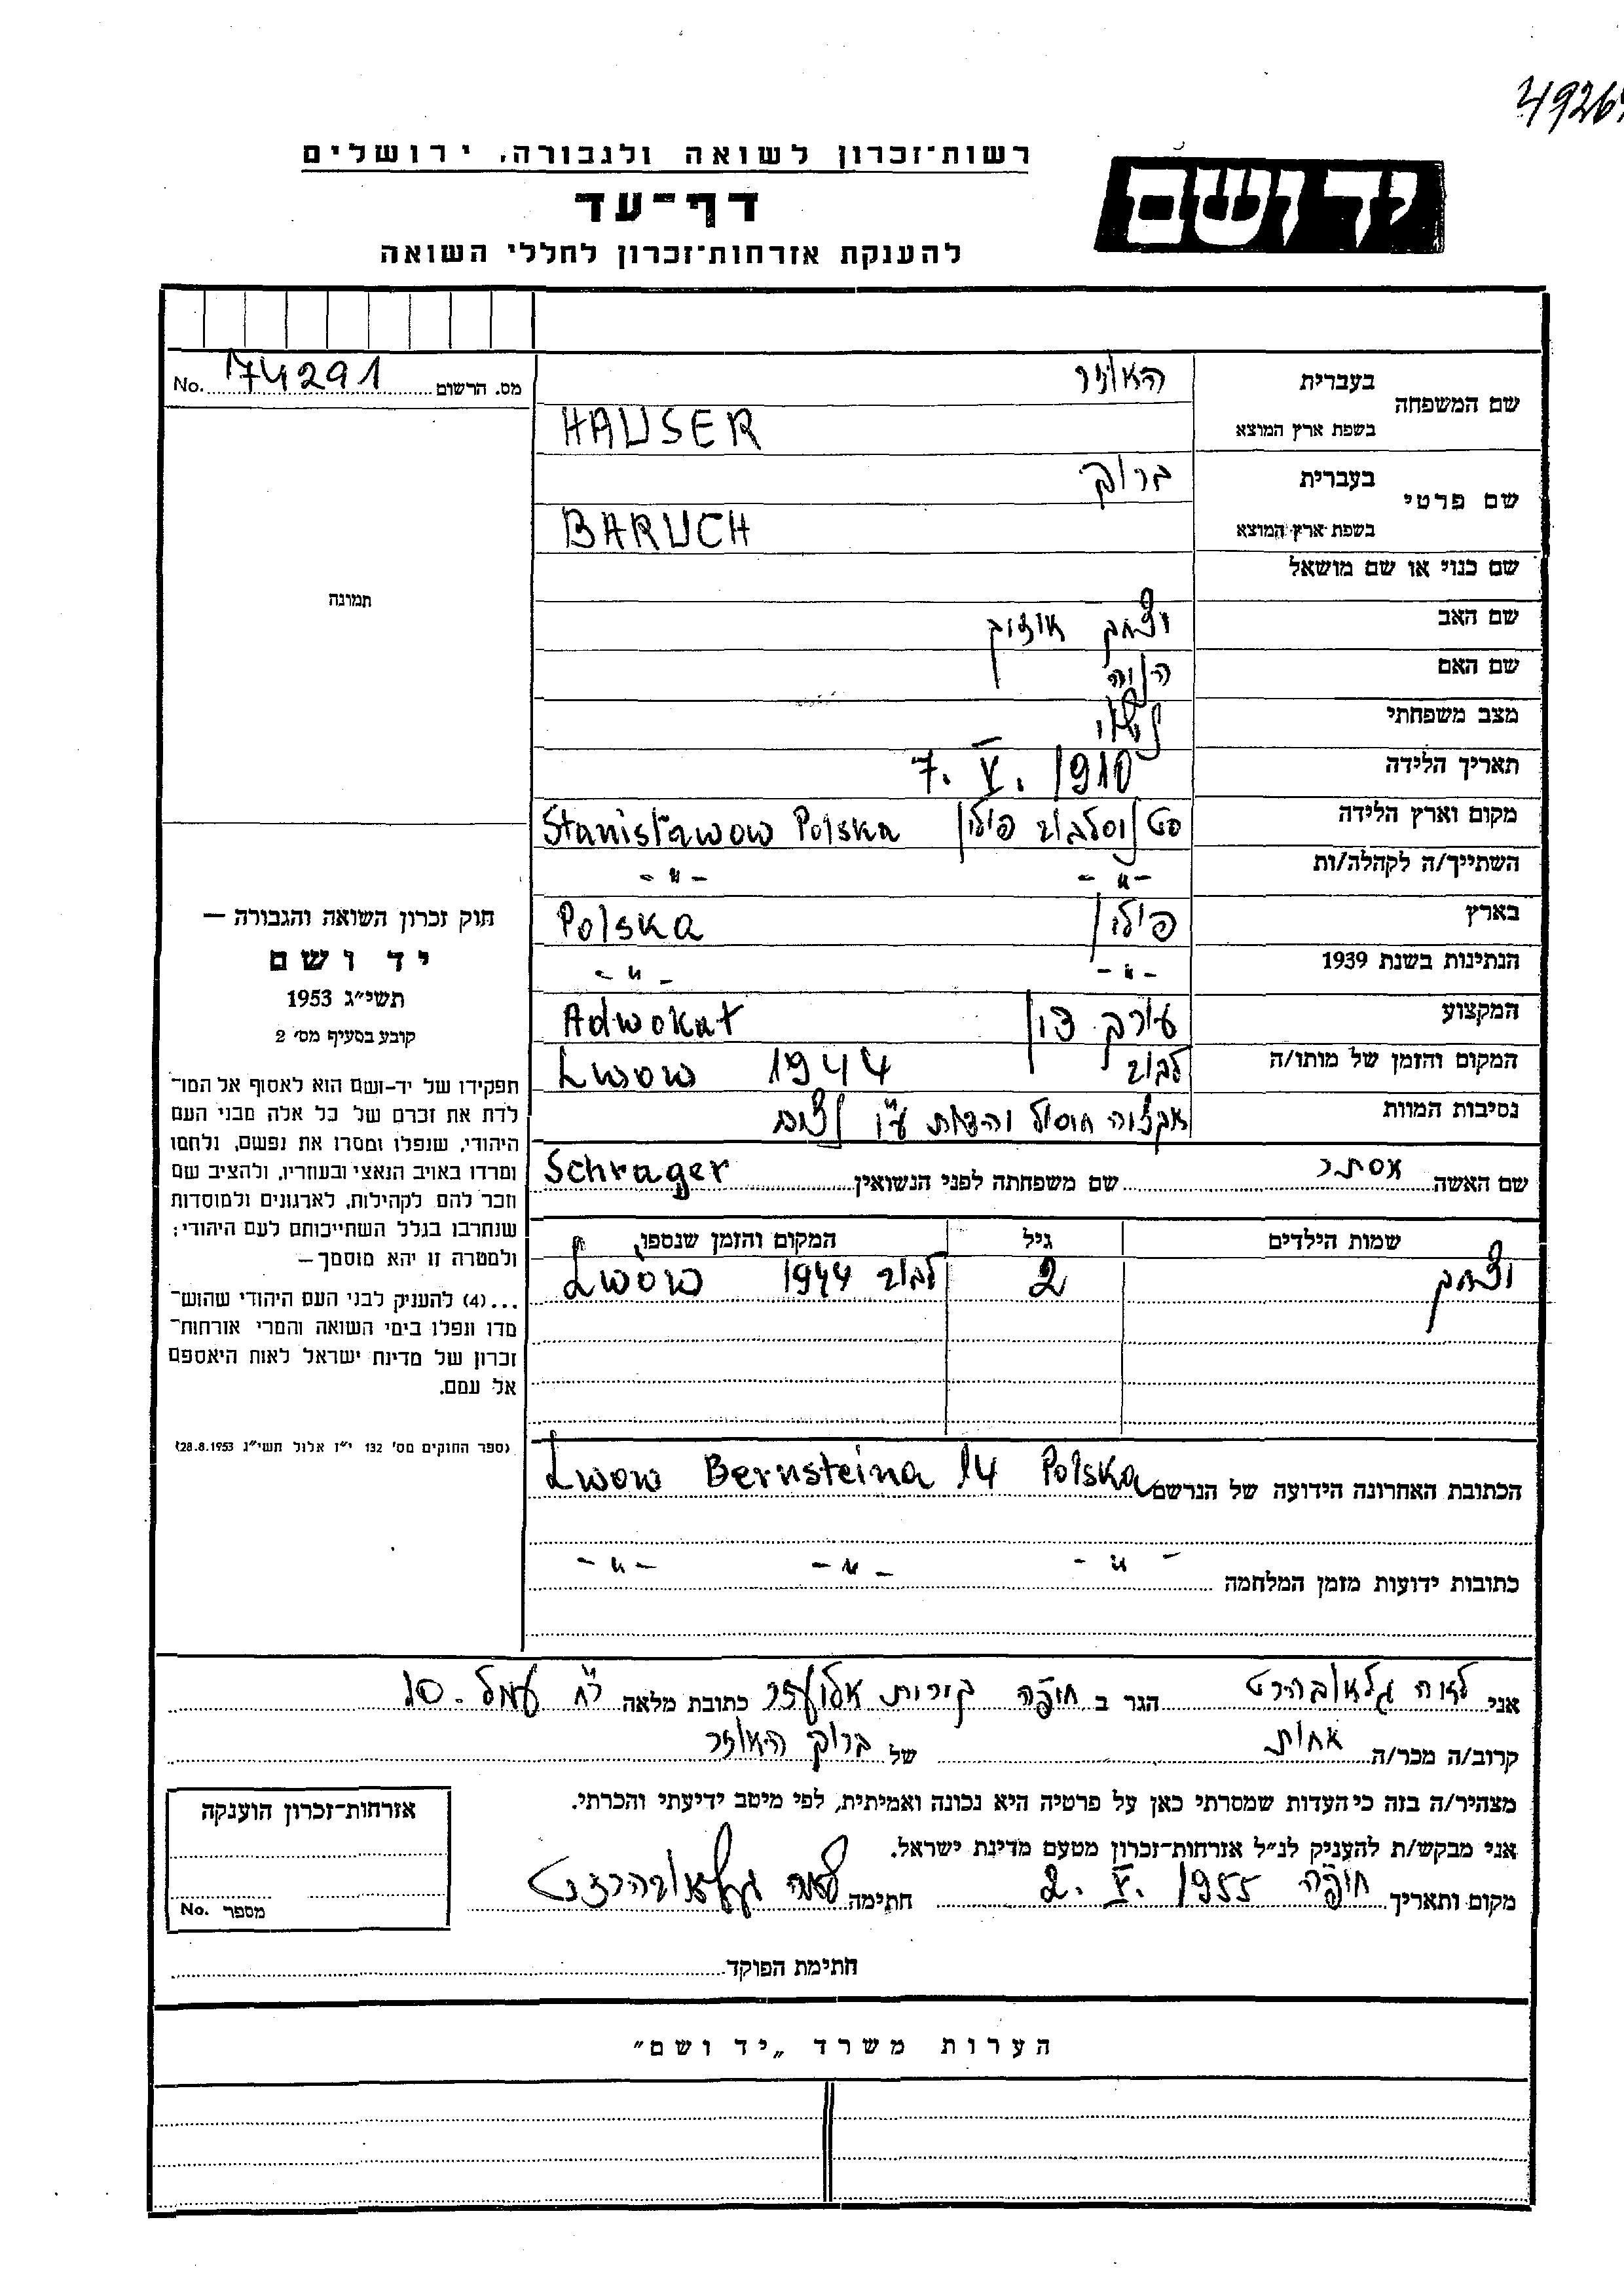 4926
רשות־זכרון לשואה ולגבורה, ירושלים
יד ושם
דף־עד
להענקת אזרחות־זכרון לחללי השואה
מס. הרשום 174291 No.
שם המשפחה
בעברית האוזר
בשפת ארץ המוצא HAUSER
שם פרטי
בעברית ברוך
בשפת ארץ המוצא BARUCH
שם כנוי או שם מושאל
שם האב יצחק אייזיק
שם האם
מצב משפחתי נשוי
תאריך הלידה 7. V. 1910
מקום וארץ הלידה סטניסלבוב פולין Stanisławow Polska
השתייך/ה לקהלה/ות -"- -"-
בארץ פולין Polska
הנתינות בשנת 1939 -"- -"-
המקצוע עורך דין Adwokat
המקום והזמן של מותו/ה לבוב 1944 Lwow
נסיבות המוות אקציה חיסול
שם האשה אסתר שם משפחתה לפני הנשואין Schrager
שמות הילדים גיל המקום והזמן שנספו
יצחק 2 לבוב 1944 Lwów
הכתובת האחרונה הידועה של הנרשם Lwow Bernsteina 14 Polska
כתובות ידועות מזמן המלחמה -"- -"- -"-
תמונה
חוק זכרון השואה והגבורה —
יד ושם
תשי״ג 1953
קובע בסעיף מס׳ 2
תפקידו של יד-ושם הוא לאסוף אל המו־
לדת את זכרם של כל אלה מבני העם
היהודי, שנפלו ומסרו את נפשם, נלחמו
ומרדו באויב הנאצי ובעוזריו, ולהציב שם
וזכר להם לקהילות, לארגונים ולמוסדות
שנחרבו בגלל השתייכותם לעם היהודי;
ולמטרה זו יהא מוסמך —
...(4) להענקת לבני העם היהודי שהוש־
מדו ונפלו בימי השואה והמרי אזרחות־
זכרון של מדינת ישראל לאות היאספם
אל עמם.
(ספר החוקים מס׳ 132 י״ז אלול תשי״ג 28.8.1953)
אני הגר ב חיפה קירית אליעזר כתובת מלאה רח׳ עמל 10
קרוב/ה מכר/ה אחות של ברוך האוזר
מצהיר/ה בזה כי העדות שמסרתי כאן על פרטיה היא נכונה ואמיתית, לפי מיטב ידיעתי והכרתי.
אני מבקש/ת להעניק לנ״ל אזרחות־זכרון מטעם מדינת ישראל.
מקום ותאריך חיפה 2. V. 1955 חתימה
אזרחות־זכרון הוענקה
מספר No.
חתימת הפוקד
הערות משרד „יד ושם״